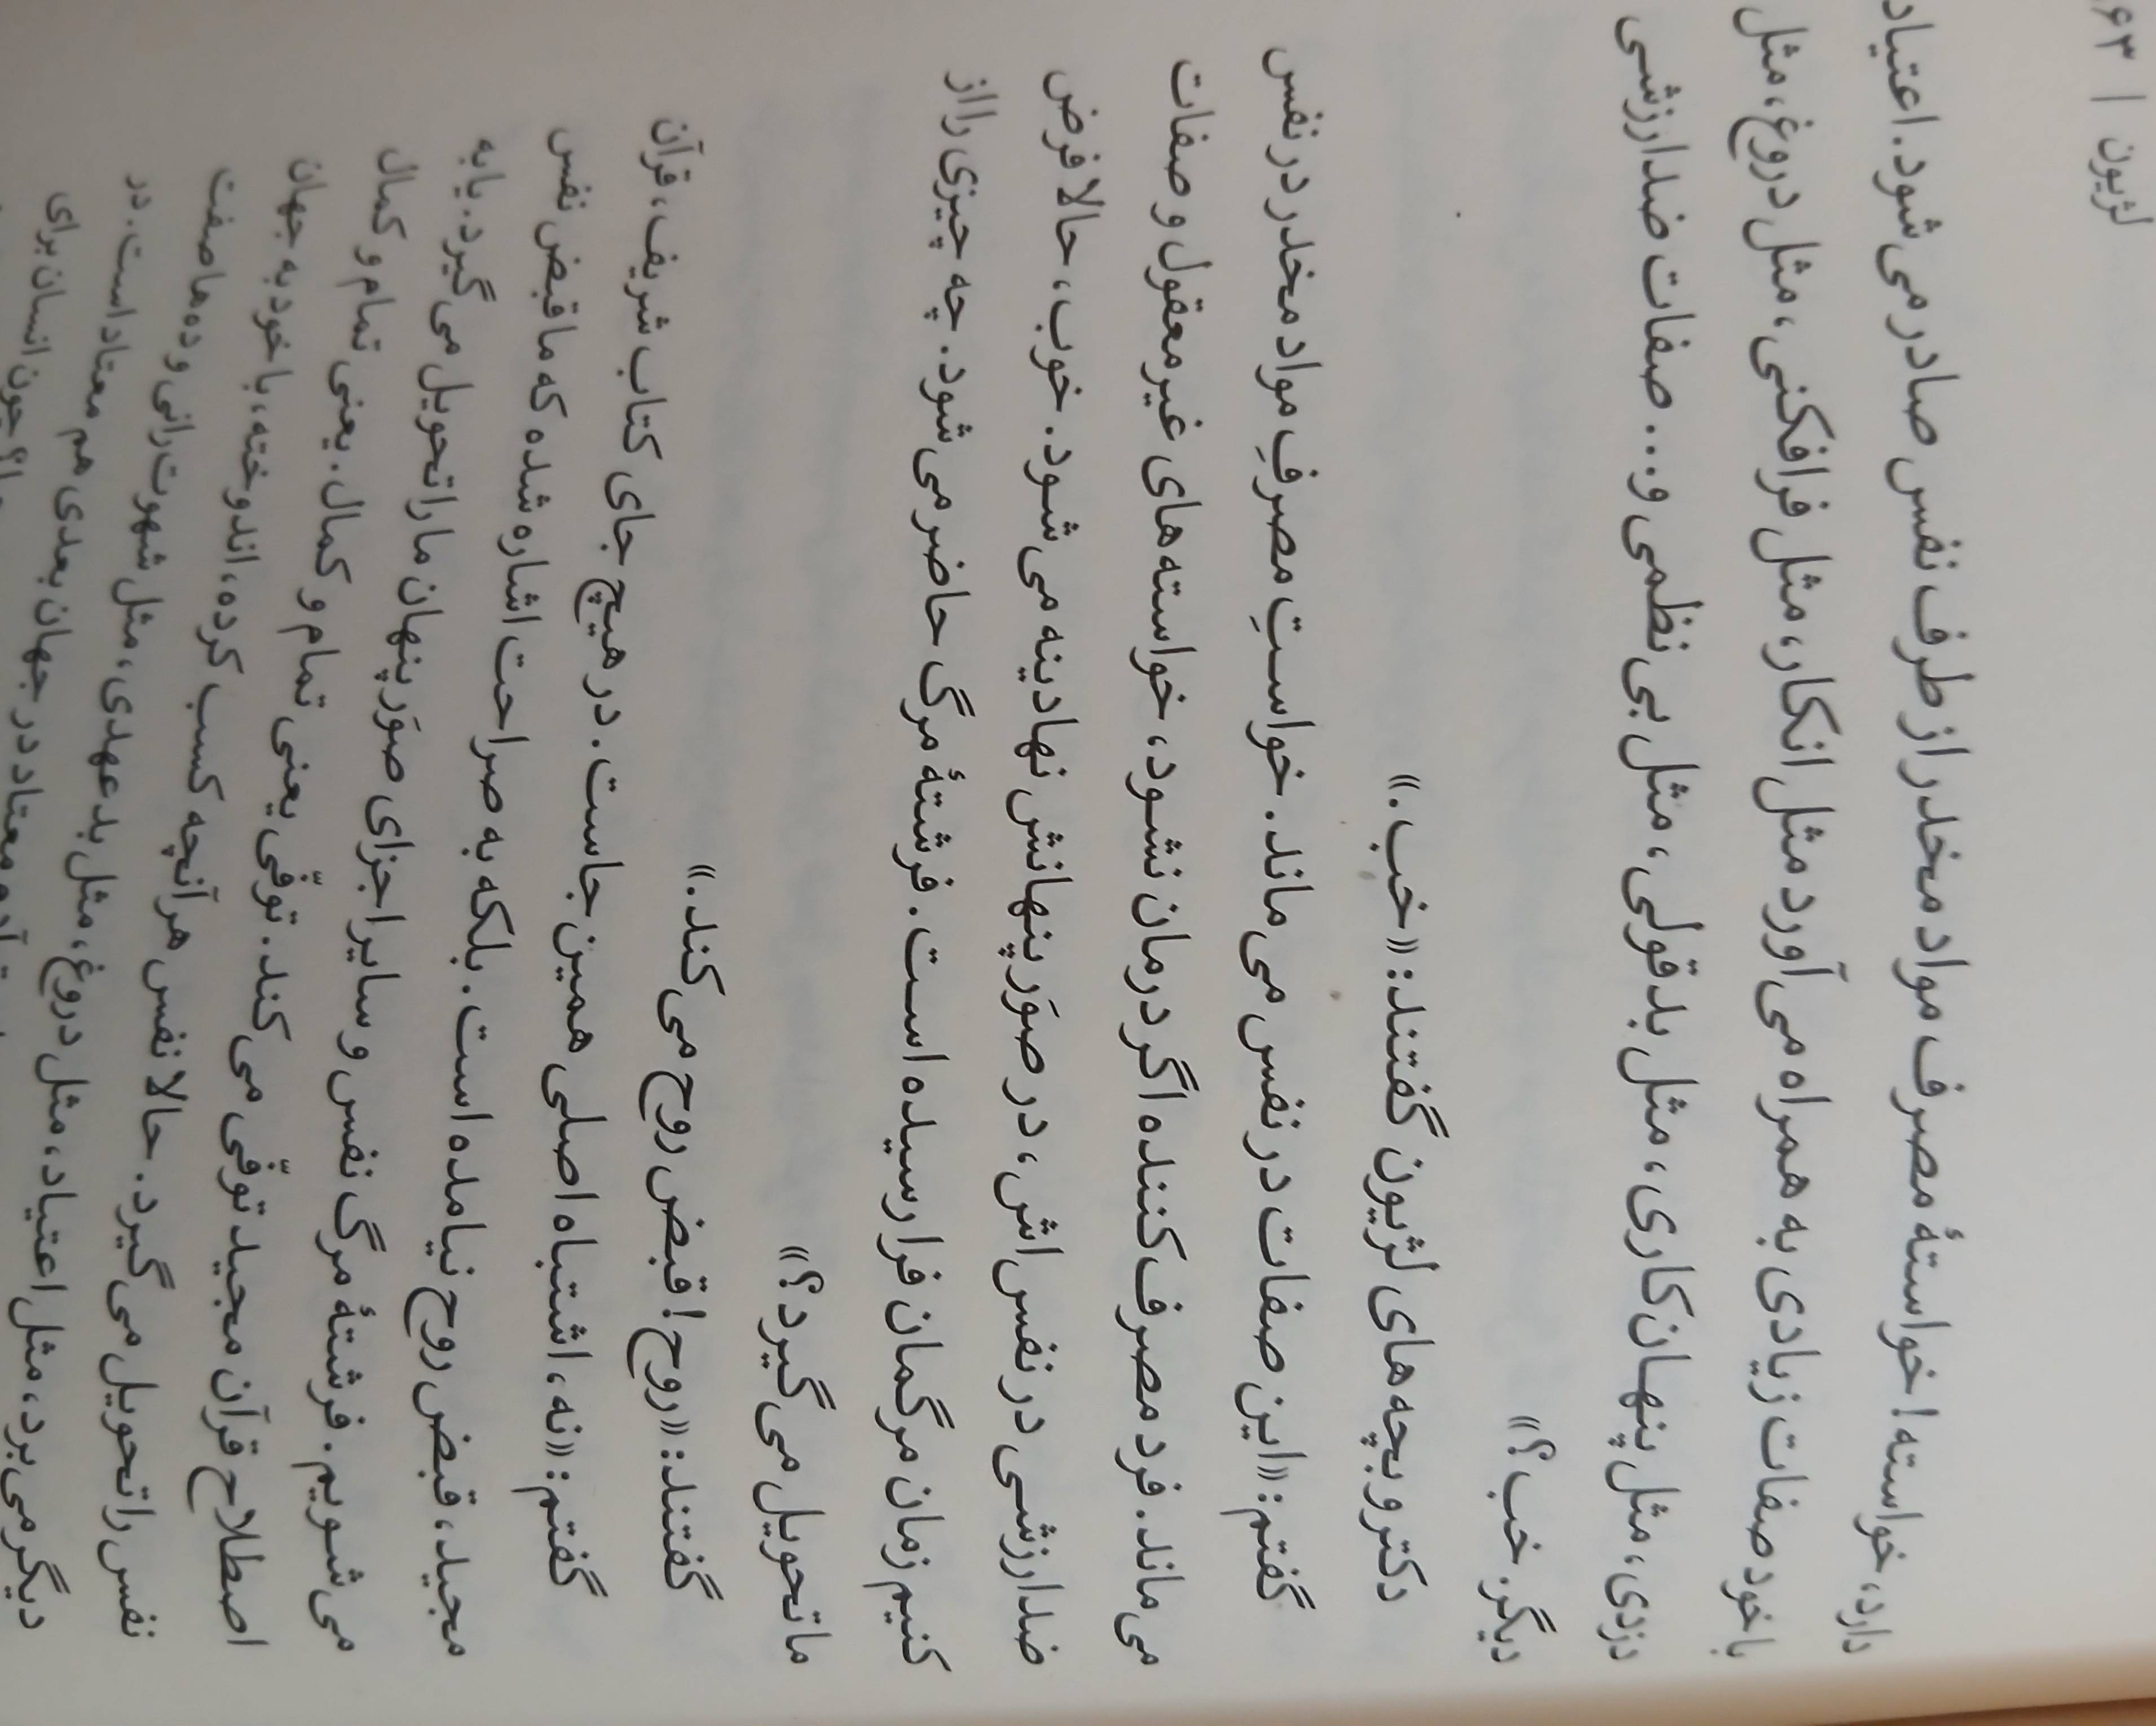 ۶۳ | لژیون
دارد، خواسته! خواستهٔ مصرف مواد مخدر از طرف نفس صادر می‌شود. اعتیاد
با خود صفات زیادی به همراه می‌آورد مثل انکار، مثل فرافکنی، مثل دروغ، مثل
دزدی، مثل پنهان‌کاری، مثل بدقولی، مثل بی‌نظمی و... صفات ضدارزشی
دیگر. خب؟»
دکتر و بچه‌های لژیون گفتند: «خب.»
گفتم: «این صفات در نفس می‌ماند. خواستِ مصرفِ مواد مخدر در نفس
می‌ماند. فرد مصرف‌کننده اگر درمان نشود، خواسته‌های غیرمعقول و صفات
ضدارزشی در نفس‌اش، در صوَر پنهانش نهادینه می‌شود. خوب، حالا فرض
کنیم زمان مرگمان فرا رسیده است. فرشتهٔ مرگ حاضر می‌شود. چه چیزی را از
ما تحویل می‌گیرد؟»
گفتند: «روح! قبض روح می‌کند.»
گفتم: «نه، اشتباه اصلی همین جاست. در هیچ جای کتاب شریف، قرآن
مجید، قبض روح نیامده است. بلکه به صراحت اشاره شده که ما قبض نفس
می‌شویم. فرشتهٔ مرگ نفس و سایر اجزای صوَر پنهان ما را تحویل می‌گیرد. یا به
اصطلاح قرآن مجید توفّی می‌کند. توفّی یعنی تمام و کمال. یعنی تمام و کمال
نفس را تحویل می‌گیرد. حالا نفس هر آنچه کسب کرده، اندوخته، با خود به جهان
دیگر می‌برد، مثل اعتیاد، مثل دروغ، مثل بدعهدی، مثل شهوت‌رانی و ده‌ها صفت
معتاد در جهان بعدی هم معتاد است. در
چون انسان برای